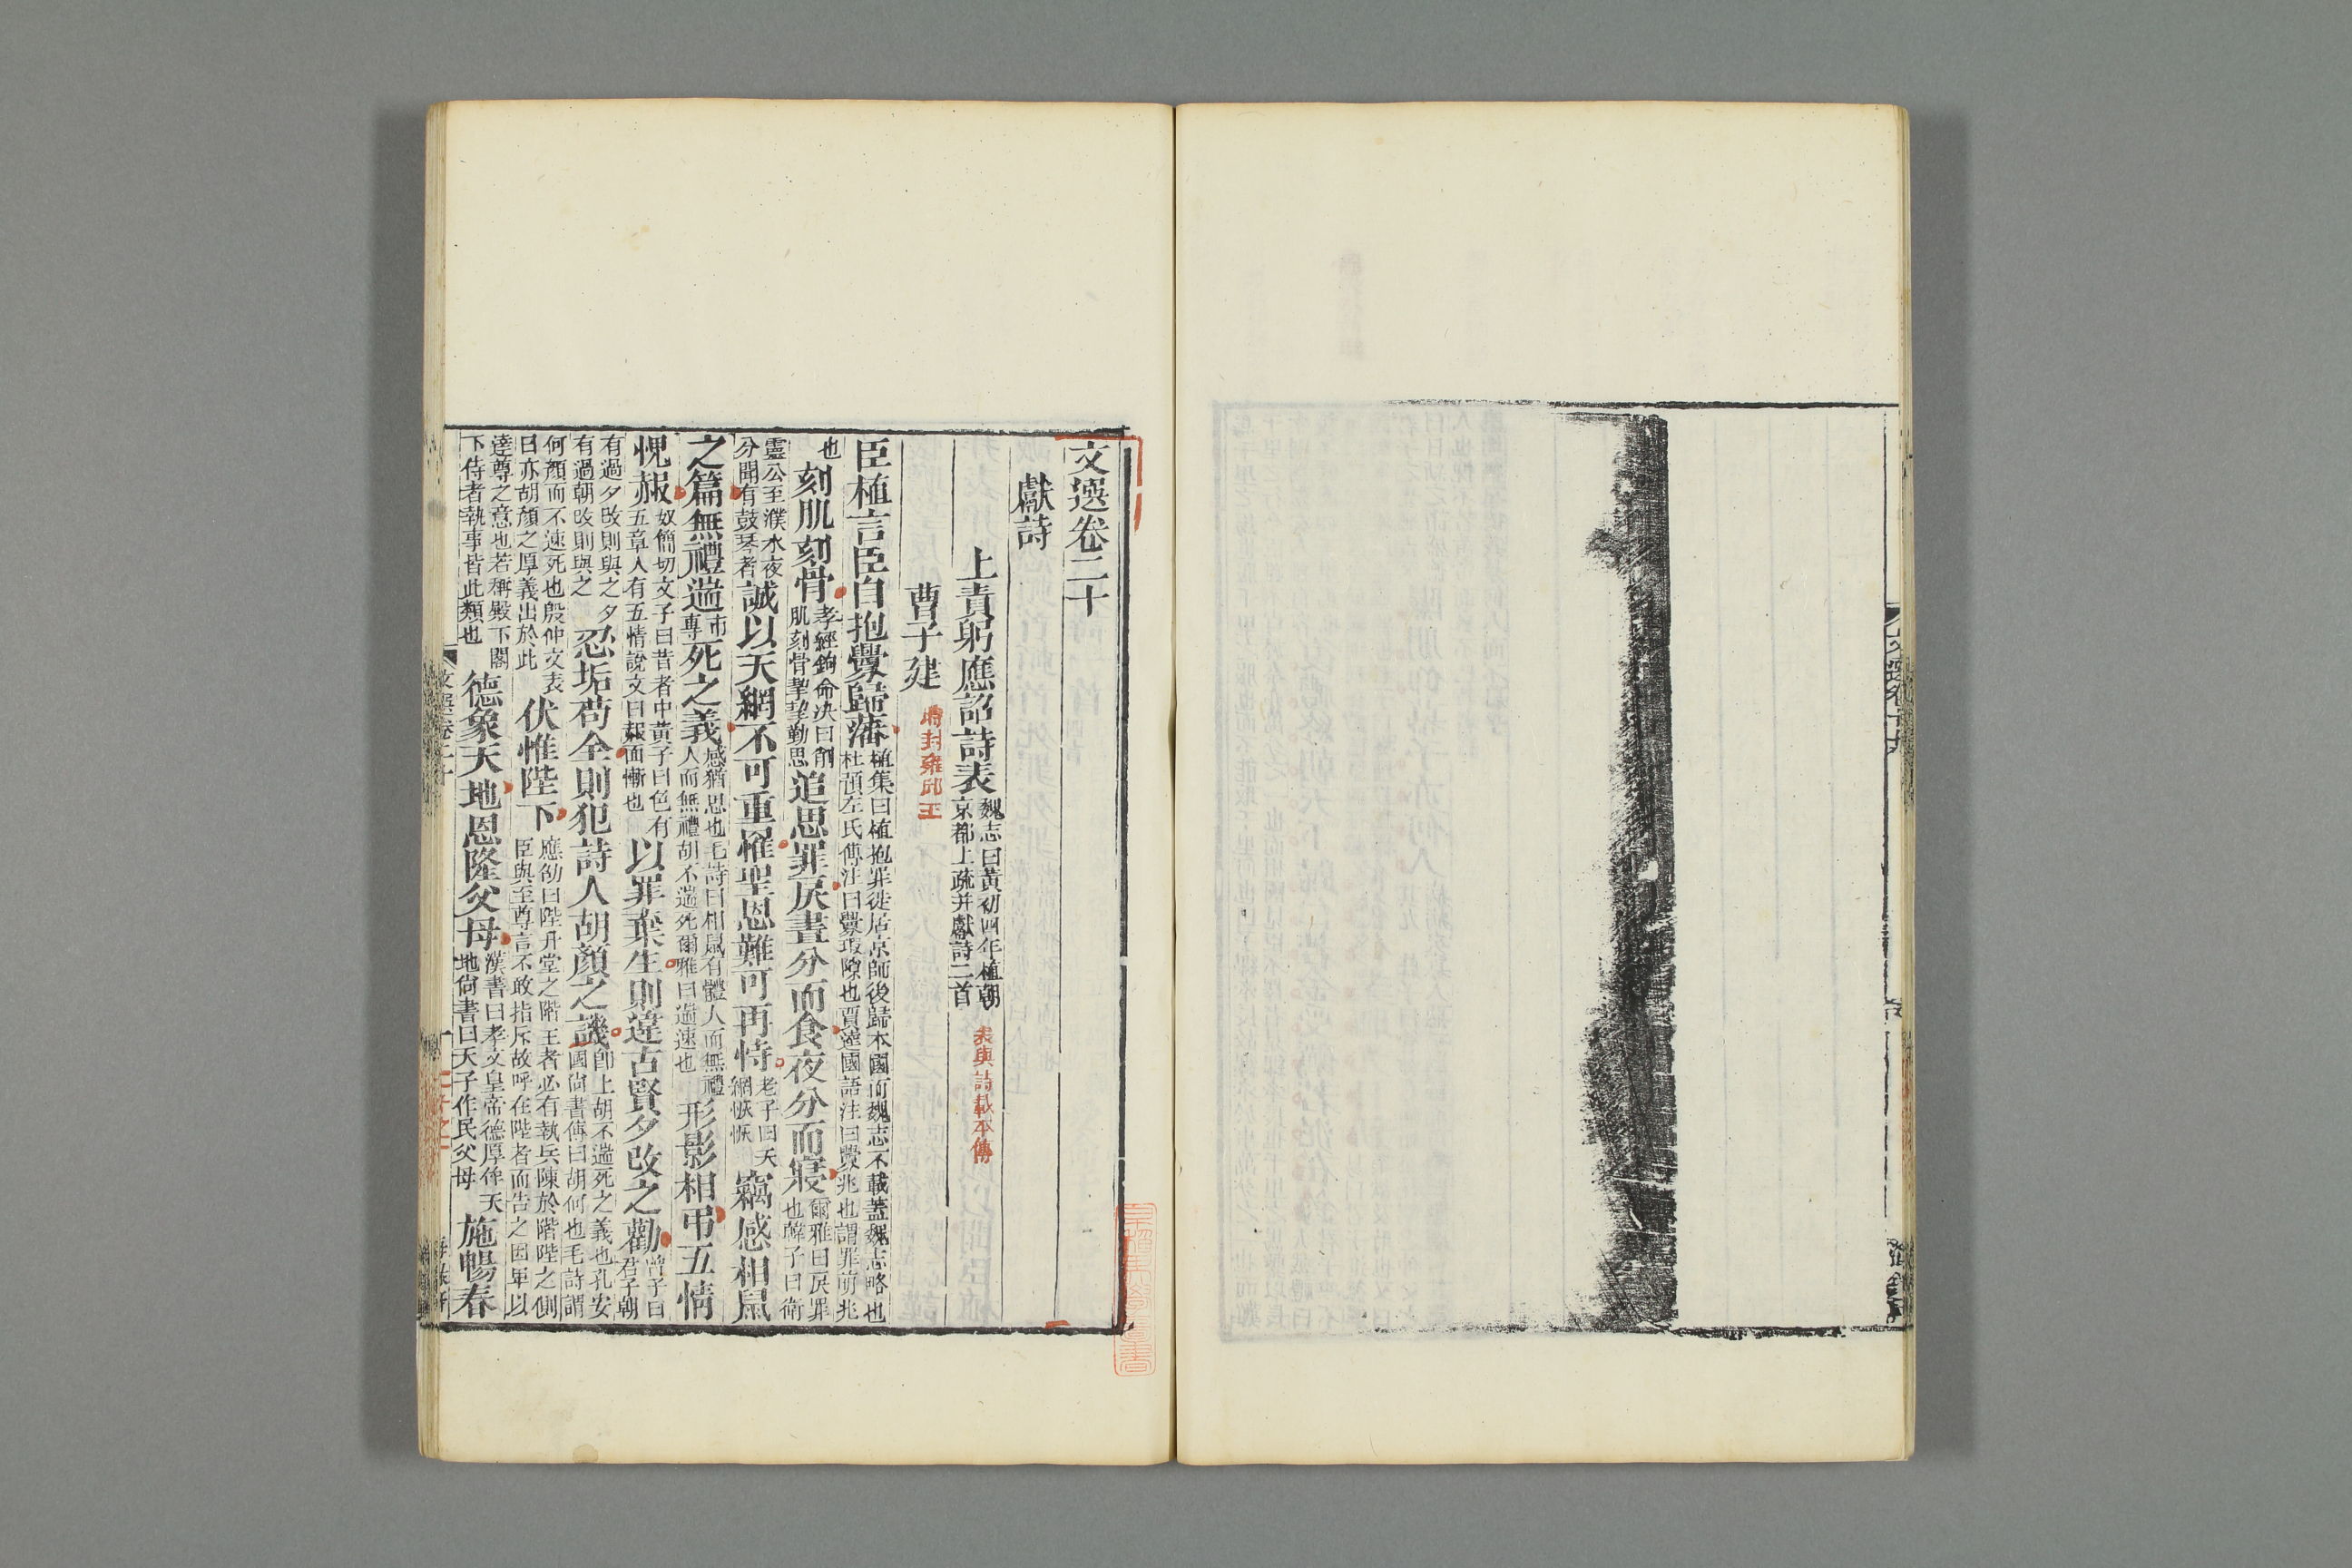 文選卷二十
獻詩
上責躬應詔詩表 魏志曰黃初四年植朝京都上疏并獻詩二首 表與詩載本傳
曹子建 時封雍邱王
臣植言臣自抱釁歸藩 植集曰植抱罪徙居京師後歸本國而魏志不載蓋魏志略也杜預左氏傳注曰釁瑕隙也賈逵國語注曰釁兆也謂罪萌兆
也刻肌刻骨 孝經鉤命決曰削肌刻骨挈挈勤思 追思罪戾晝分而食夜分而寢 爾雅曰戾罪也韓子曰衛
靈公至濮水夜分聞有鼓琴者 誠以天網不可重罹聖恩難可再恃 老子曰天網恢恢 竊感相鼠
之篇無禮遄 市專 死之義 感猶思也毛詩曰相鼠有體人而無禮人而無禮胡不遄死爾雅曰遄速也 形影相弔五情
愧赧 奴簡切文子曰昔者中黃子曰色有五章人有五情說文曰赧面慚也 以罪棄生則違古賢夕改之勸 曾子曰君子朝
有過夕改則與之夕有過朝改則與之 忍垢苟全則犯詩人胡顏之譏 卽上胡不遄死之義也孔安國尙書傳曰胡何也毛詩謂
何顏而不速死也殷仲文表曰亦胡顏之厚義出於此 伏惟陛下 應劭曰陛升堂之階王者必有執兵陳於階陛之側臣與至尊言不敢指斥故呼在陛者而告之因卑以
達尊之意也若稱殿下閣下侍者執事皆此類也 德象天地恩隆父母 漢書曰孝文皇帝德厚侔天地尙書曰天子作民父母 施暢春
文選卷二十
一
文選卷十九